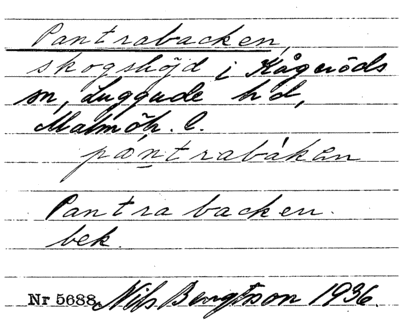 Pantrabacken,
skogshöjd i Kågeröds
sn, Luggude hd,
Malmöh. l.
pántrabákën
Pantrabacken.
bek.
Nr 5688. Nils Bengtson 1936.